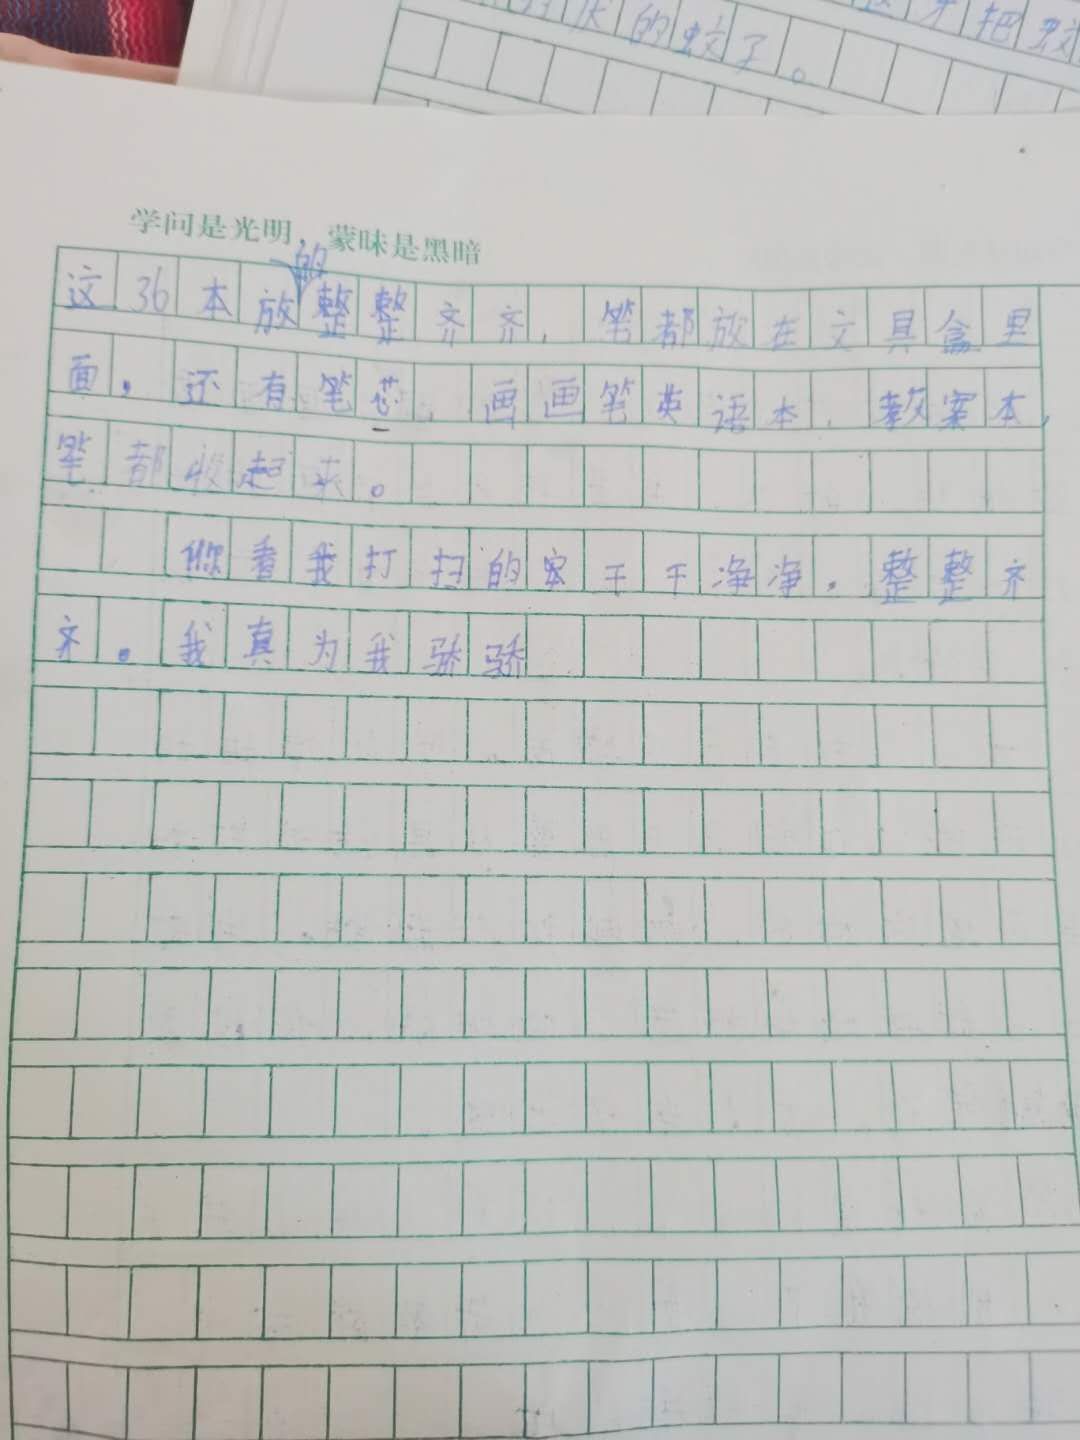 的蚊子。
把蚊
学问是光明，蒙昧是黑暗
这36本放的整整齐齐，笔都放在文具盒里
面，还有笔芯，画画笔英语本，教案本，
笔都收起来。
你看我打扫的家干干净净，整整齐
齐。我真为我骄骄